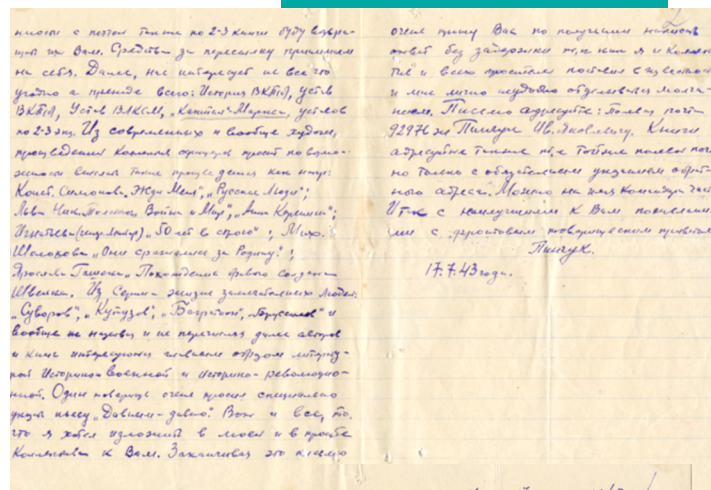 ности с почтой только по 2-3 книги буду возвра-
щать их Вам. Средства за пересылку принимаем
на себя. Далее, нас интересует не все что
угодно а прежде всего: История ВКП/б/, устав
ВКП/б/, Устав ВЛКСМ, „Капитал" Маркса, уставов
по 2-3 экз. Из современных и вообще худож.
произведений Коллектив офицеров просит по возмож-
ности выслать такие произведения как напр:
Конст. Симонова „Жди Меня", „Русские Люди";
Льва Ник. Толстого Война и Мир", „Анна Каренина";
Игнатьева „50 лет в строю"; Мих.
Шолохова „Они сражались за Родину";
Ярослава Гашека „Похождения бравого солдата
Швейка. Из Серии жизнь замечательных людей:
„Суворов", „Кутузов", „Багратион", „Брусилов" и
вообще не называя и не перечисляя далее авторов
и книг интересуемся главным образом литерату-
рой Историко Военной и историко-революцион-
ной. Один товарищ очень просил специально
пьесу „Давным-давно". Вот и все, то,
что я хотел изложить в моей и в просьбе
Коллектива к Вам. Заканчивая это письмо
очень прошу Вас по получении написать
ответ без задержки т.к. как я и Коллек-
тив и всего
и мне лично неудобно отделываться молча-
нием. Письмо адресуйте: Полевая почта
92976 Пинчук Ив. Яковлевичу. Книги
адресуйте также на той же полевой поч
но только с обязательным указанием обрат-
ного адреса. Можно на имя командира части
Итак с наилучшими к Вам пожелани-
ями с фронтовым товарищеским приветом
Пинчук.
17.7.43 года.